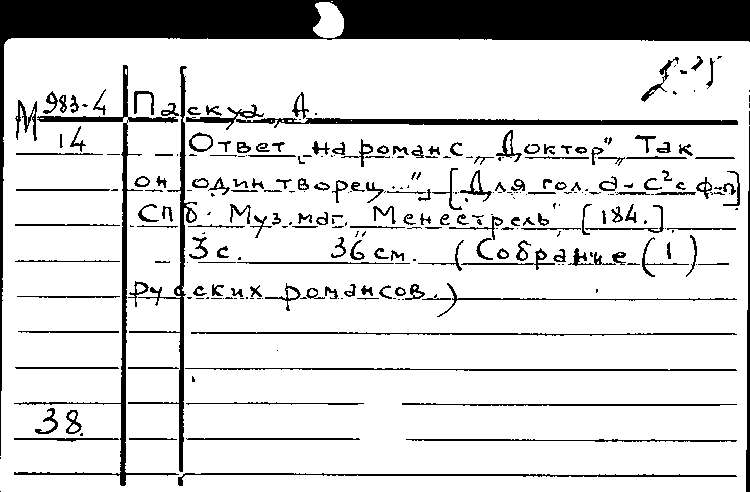 М 983-4 Паскуа, А.
14 Ответ на романс „Доктор" „Так
он один творец..." [Для гол. d-c² с ф-п]
СПб. Муз. маг. „Менестрель" [184.]
3 с. 36 см. (Собрание (1)
русских романсов.)
38